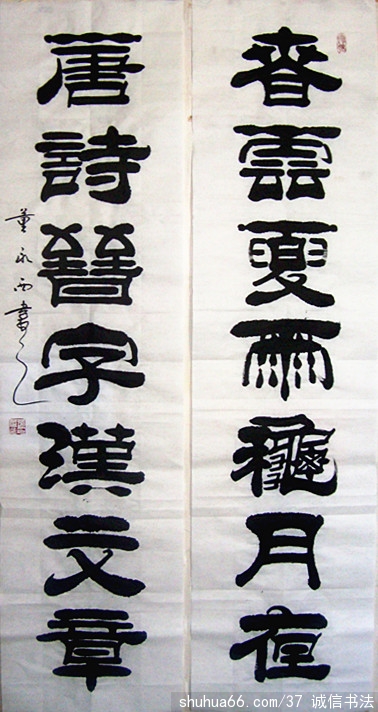 春雲夏雨龝月夜
唐詩晉字漢文章
董永西書
shuhua66.com/37 诚信书法